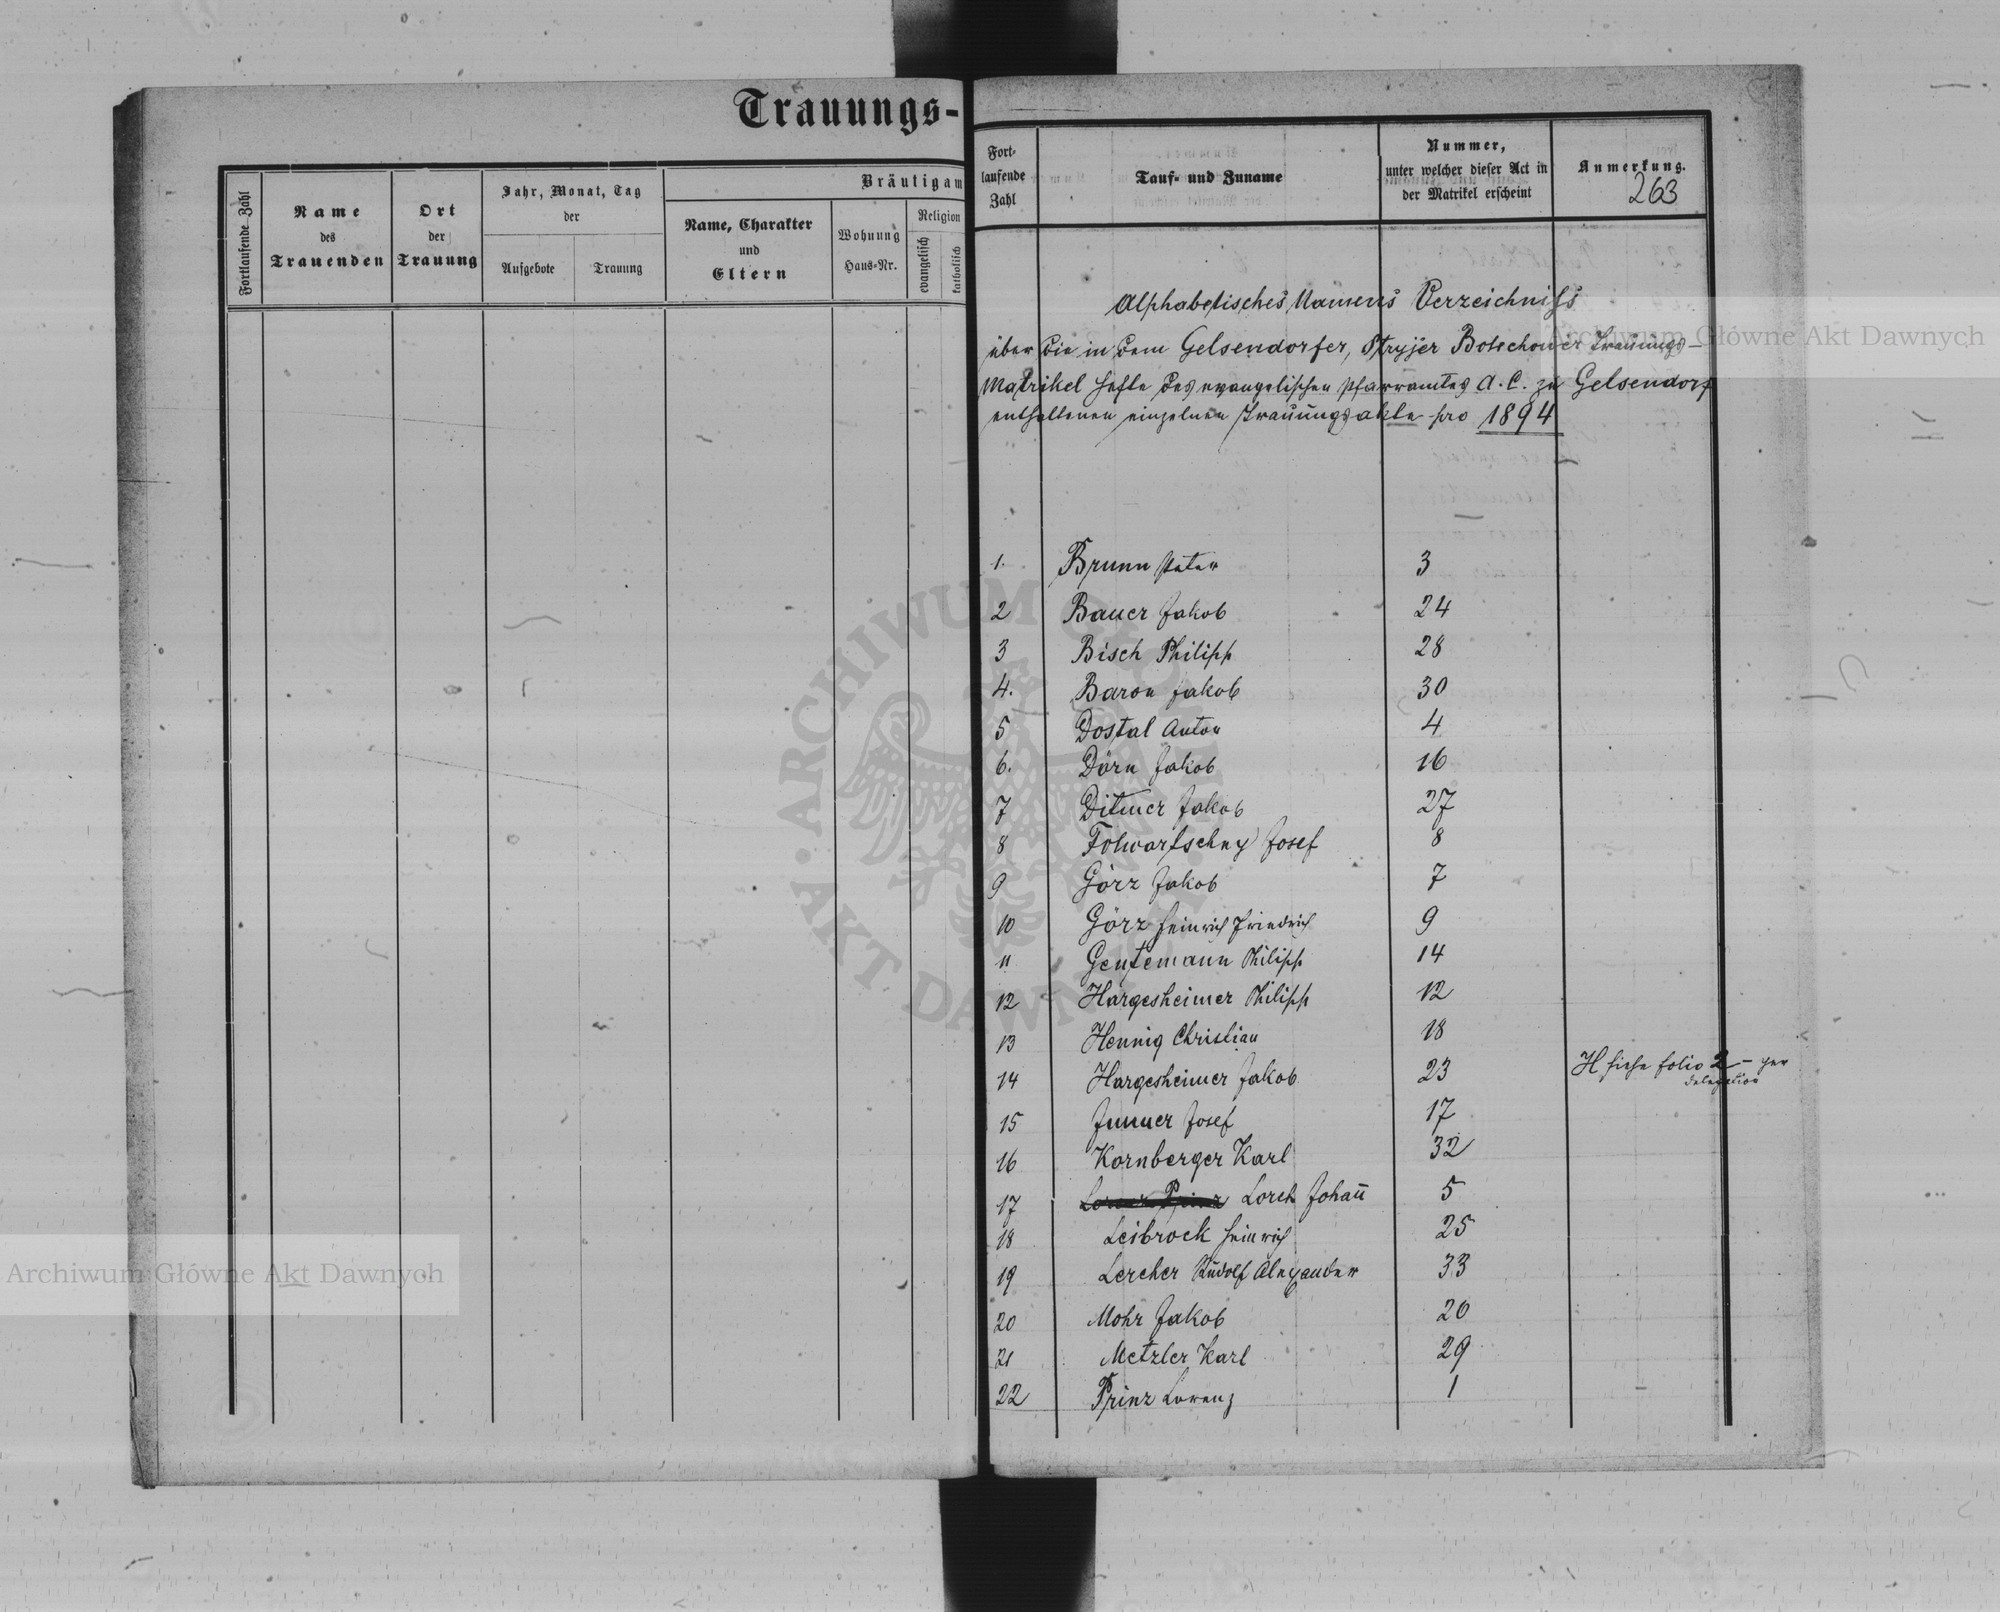 Trauungs-
Fortlaufende Zahl
Name
des
Trauenden
Ort
der
Trauung
Jahr, Monat, Tag
der
Aufgebote
Trauung
Bräutigam
Name, Charakter
und
Eltern
Wohnung
Haus-Nr.
Religion
evangelisch
katholisch
Fort-
laufende
Zahl
Tauf- und Zuname
Nummer,
unter welcher dieser Act in
der Matrikel erscheint
Anmerkung.
263
Alphabetisches Namens Verzeichniss
über die in dem Gelsendorfer, Stryjer Bolechower Trauungs-
Matrikel Hefte des evangelischen Pfarramtes A. C. zu Gelsendorf
enthaltenen einzelnen Trauungsakte pro 1894
1. Brunn Peter 3
2 Bauer Jakob 24
3 Bisch Philipp 28
4. Baron Jakob 30
5 Dostal Anton 4
6. Dörn Jakob 16
7 Ditmer Jakob 27
8 Folwartschny Josef 8
9 Görz Jakob 7
10 Görz Heinrich Friedrich 9
11 Gentemann Philipp 14
12 Hargesheimer Philipp 12
13 Hennig Christian 18
14 Hargesheimer Jakob 23 H siehe folio 2 - per
delegation
15 Junner Josef 17
16 Kornberger Karl 32
17 Lorch Johann 5
18 Leibrock Heinrich 25
19 Lercher Rudolf Alexander 33
20 Mohr Jakob 20
21 Metzler Karl 29
22 Prinz Lorenz 1
Archiwum Główne Akt Dawnych
Archiwum Główne Akt Dawnych
ARCHIWUM GŁÓWNE AKT DAWNYCH